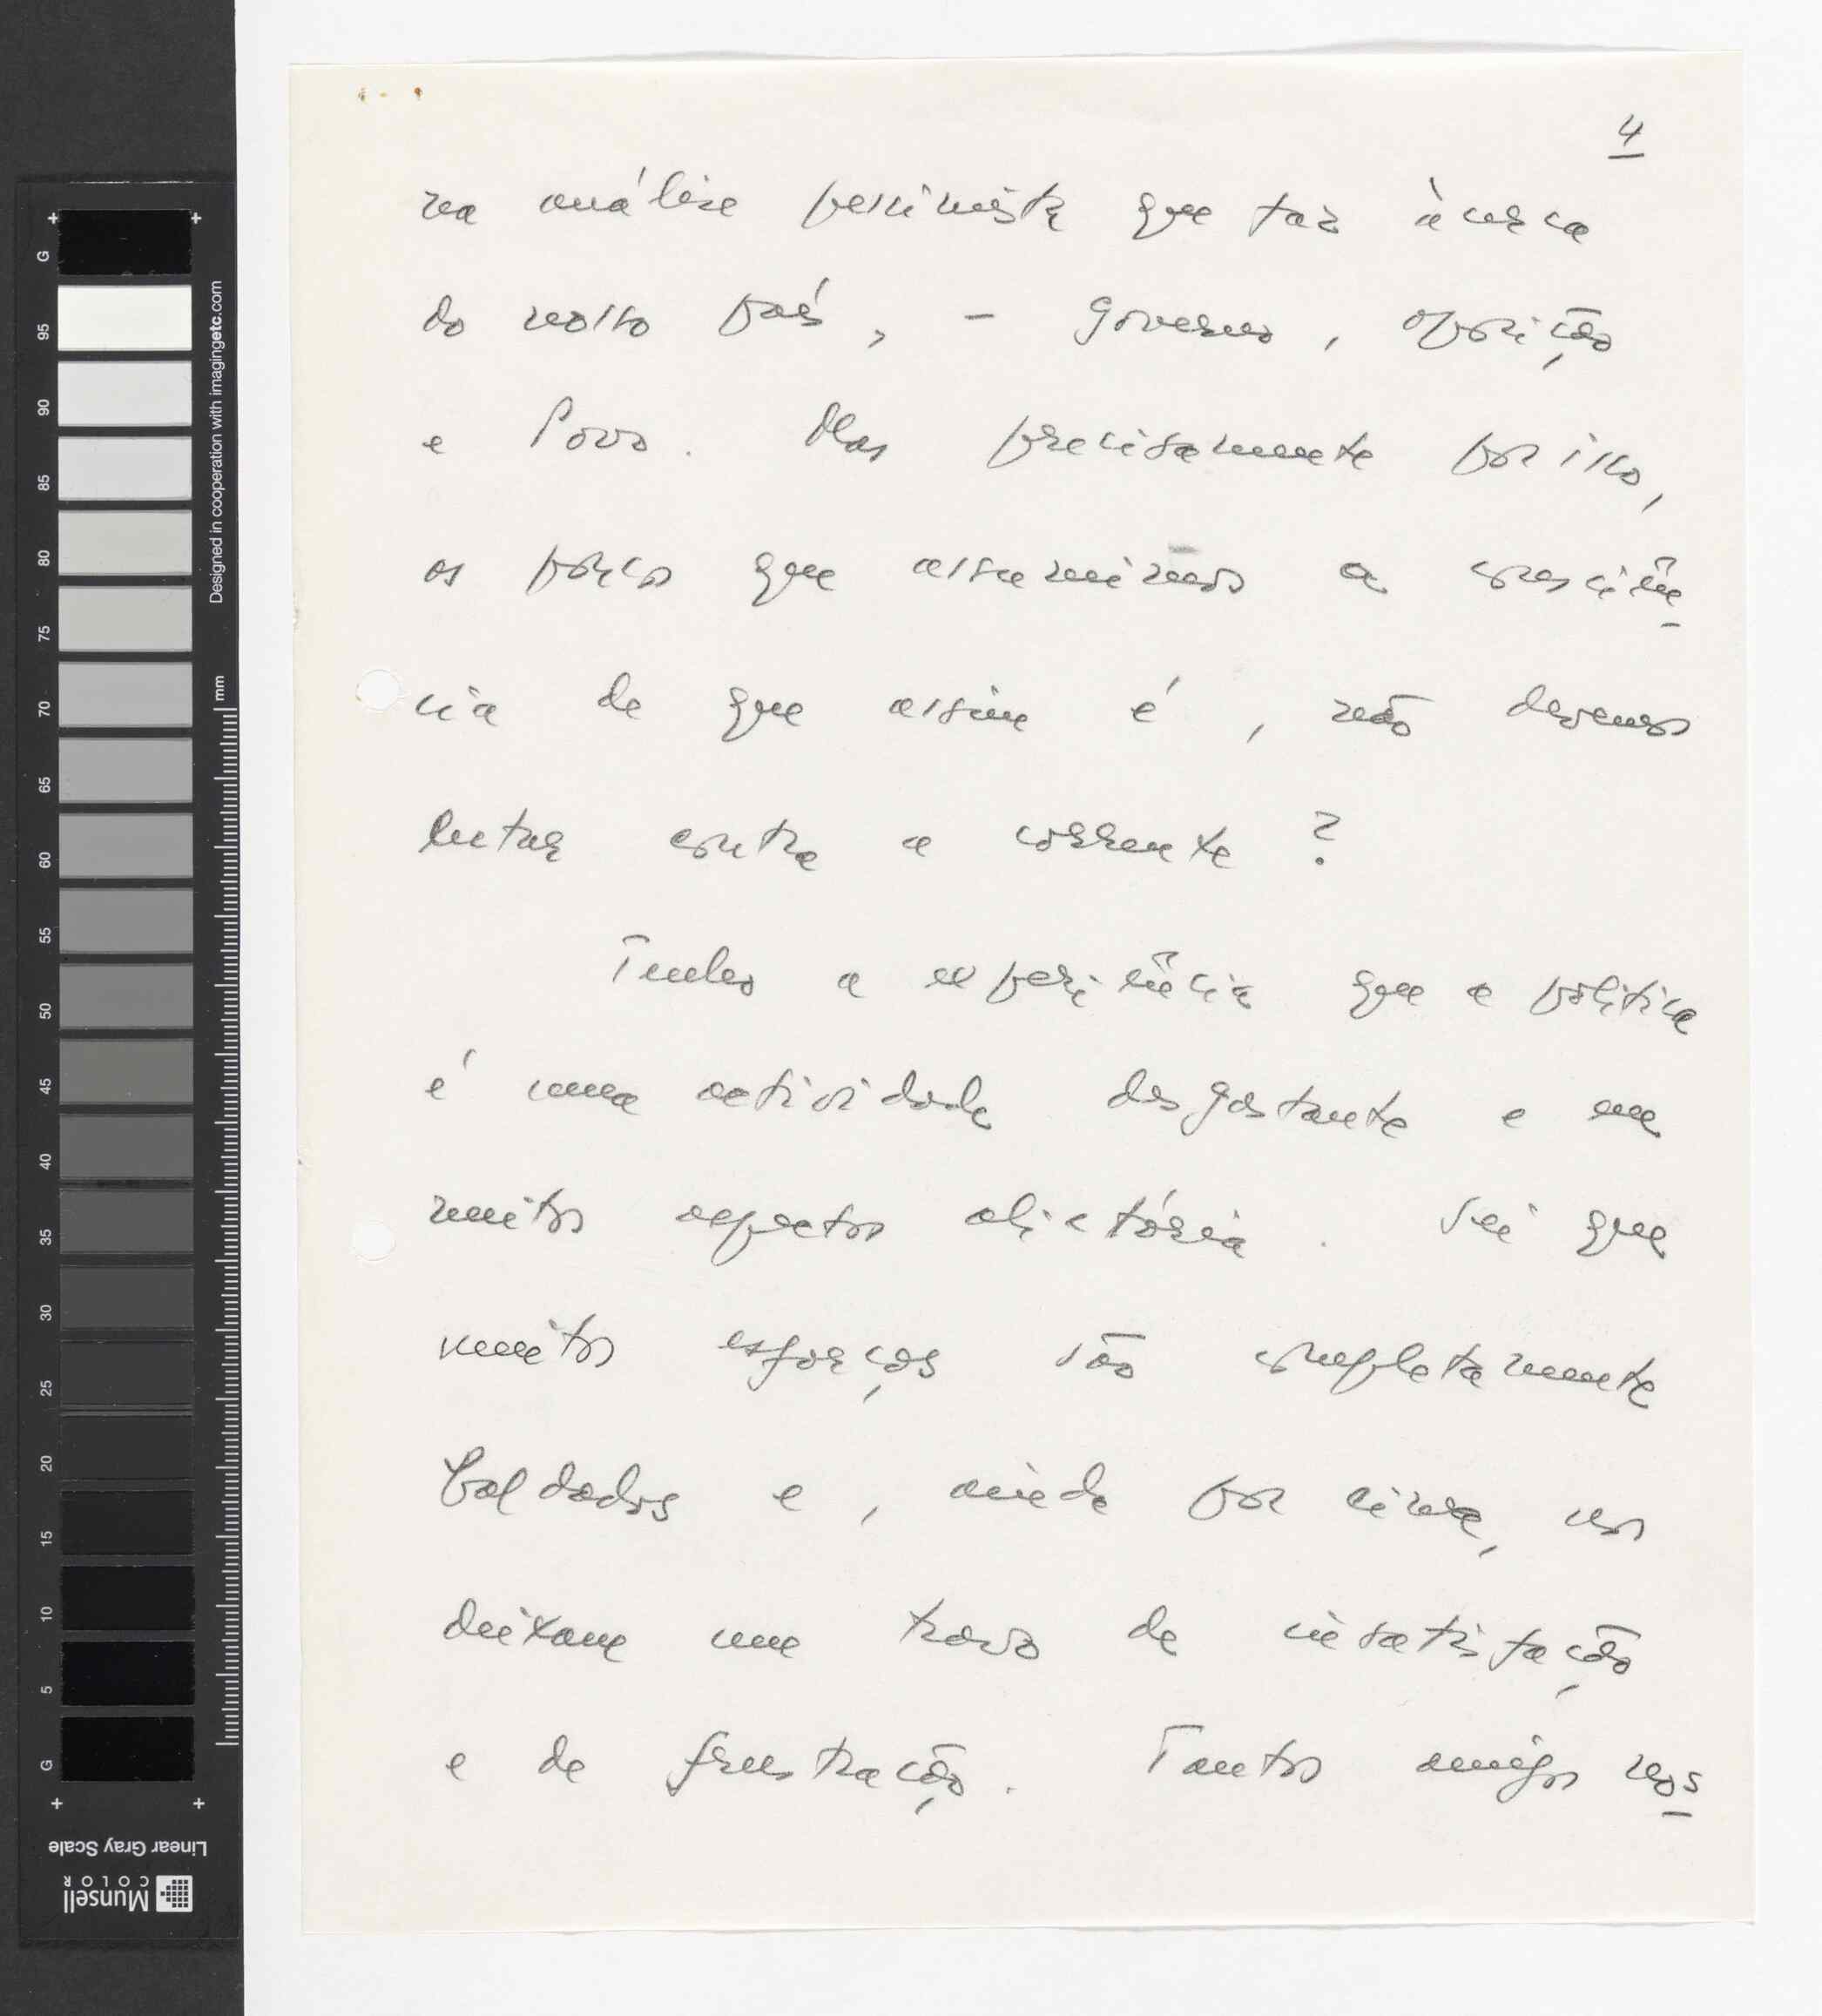 4
na análise pessimista que faz àcerca
do nosso país, - governo, oposição
e Povo. Mas precisamente por isso,
os poucos que assumimos a consciên-
cia de que assim é, não devemos
lutar contra a corrente?
Tenho a experiência que a politica
é uma actividade desgastante e em
muitos aspectos abjectória. Sei que
muitos esforços são completamente
baldados e, ainda por cima, nos
deixam um travo de insatisfação
e de frustração. Tantos amigos nos-
G
95
90
85
80
75
70
65
60
55
50
45
40
35
30
25
20
15
10
5
G
Designed in cooperation with imagingetc.com
mm
Linear Gray Scale
Munsell
COLOR